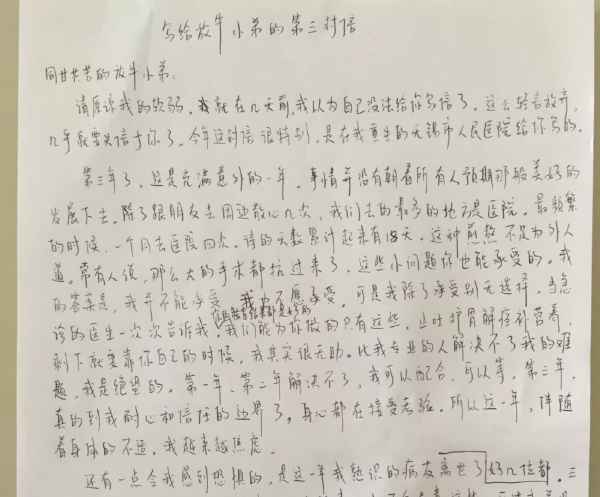 写给放牛小弟的第三封信
同甘共苦的放牛小弟:
请原谅我的软弱，我就在几天前，我以为自己没法给你写信了。这么轻言放弃，
几乎就要失信于你了。今年这封信很特别，是在我重生的无锡市人民医院给你写的。
第三年了，这是充满意外的一年。事情并没有朝着所有人预期那般美好的
发展下去。除了跟朋友去周边散心几次，我们去的最多的地方是医院。最频繁
的时候，一个月去医院四次。请的天数累计起来有18天。这种煎熬不足为外人
道。常有人说，那么大的手术都抗过来了，这些小问题你也能承受的。我
的答案是，我并不能承受，我也不愿承受。可是我除了承受别无选择。当急
诊的医生一次次告诉我，我们能为你做的只有这些，止吐护胃解痉补营养，
剩下就要靠你自己的时候，我其实很无助。比我专业的人解决不了我的难
题，我是绝望的。第一年、第二年解决不了，我可以配合，可以等。第三年，
真的到我耐心和信任的边界了。身心都在接受考验。所以这一年，伴随
着身体的不适，我越来越焦虑。
还有一点令我感到恐惧的，是这一年我熟识的病友离世了好几位都。三